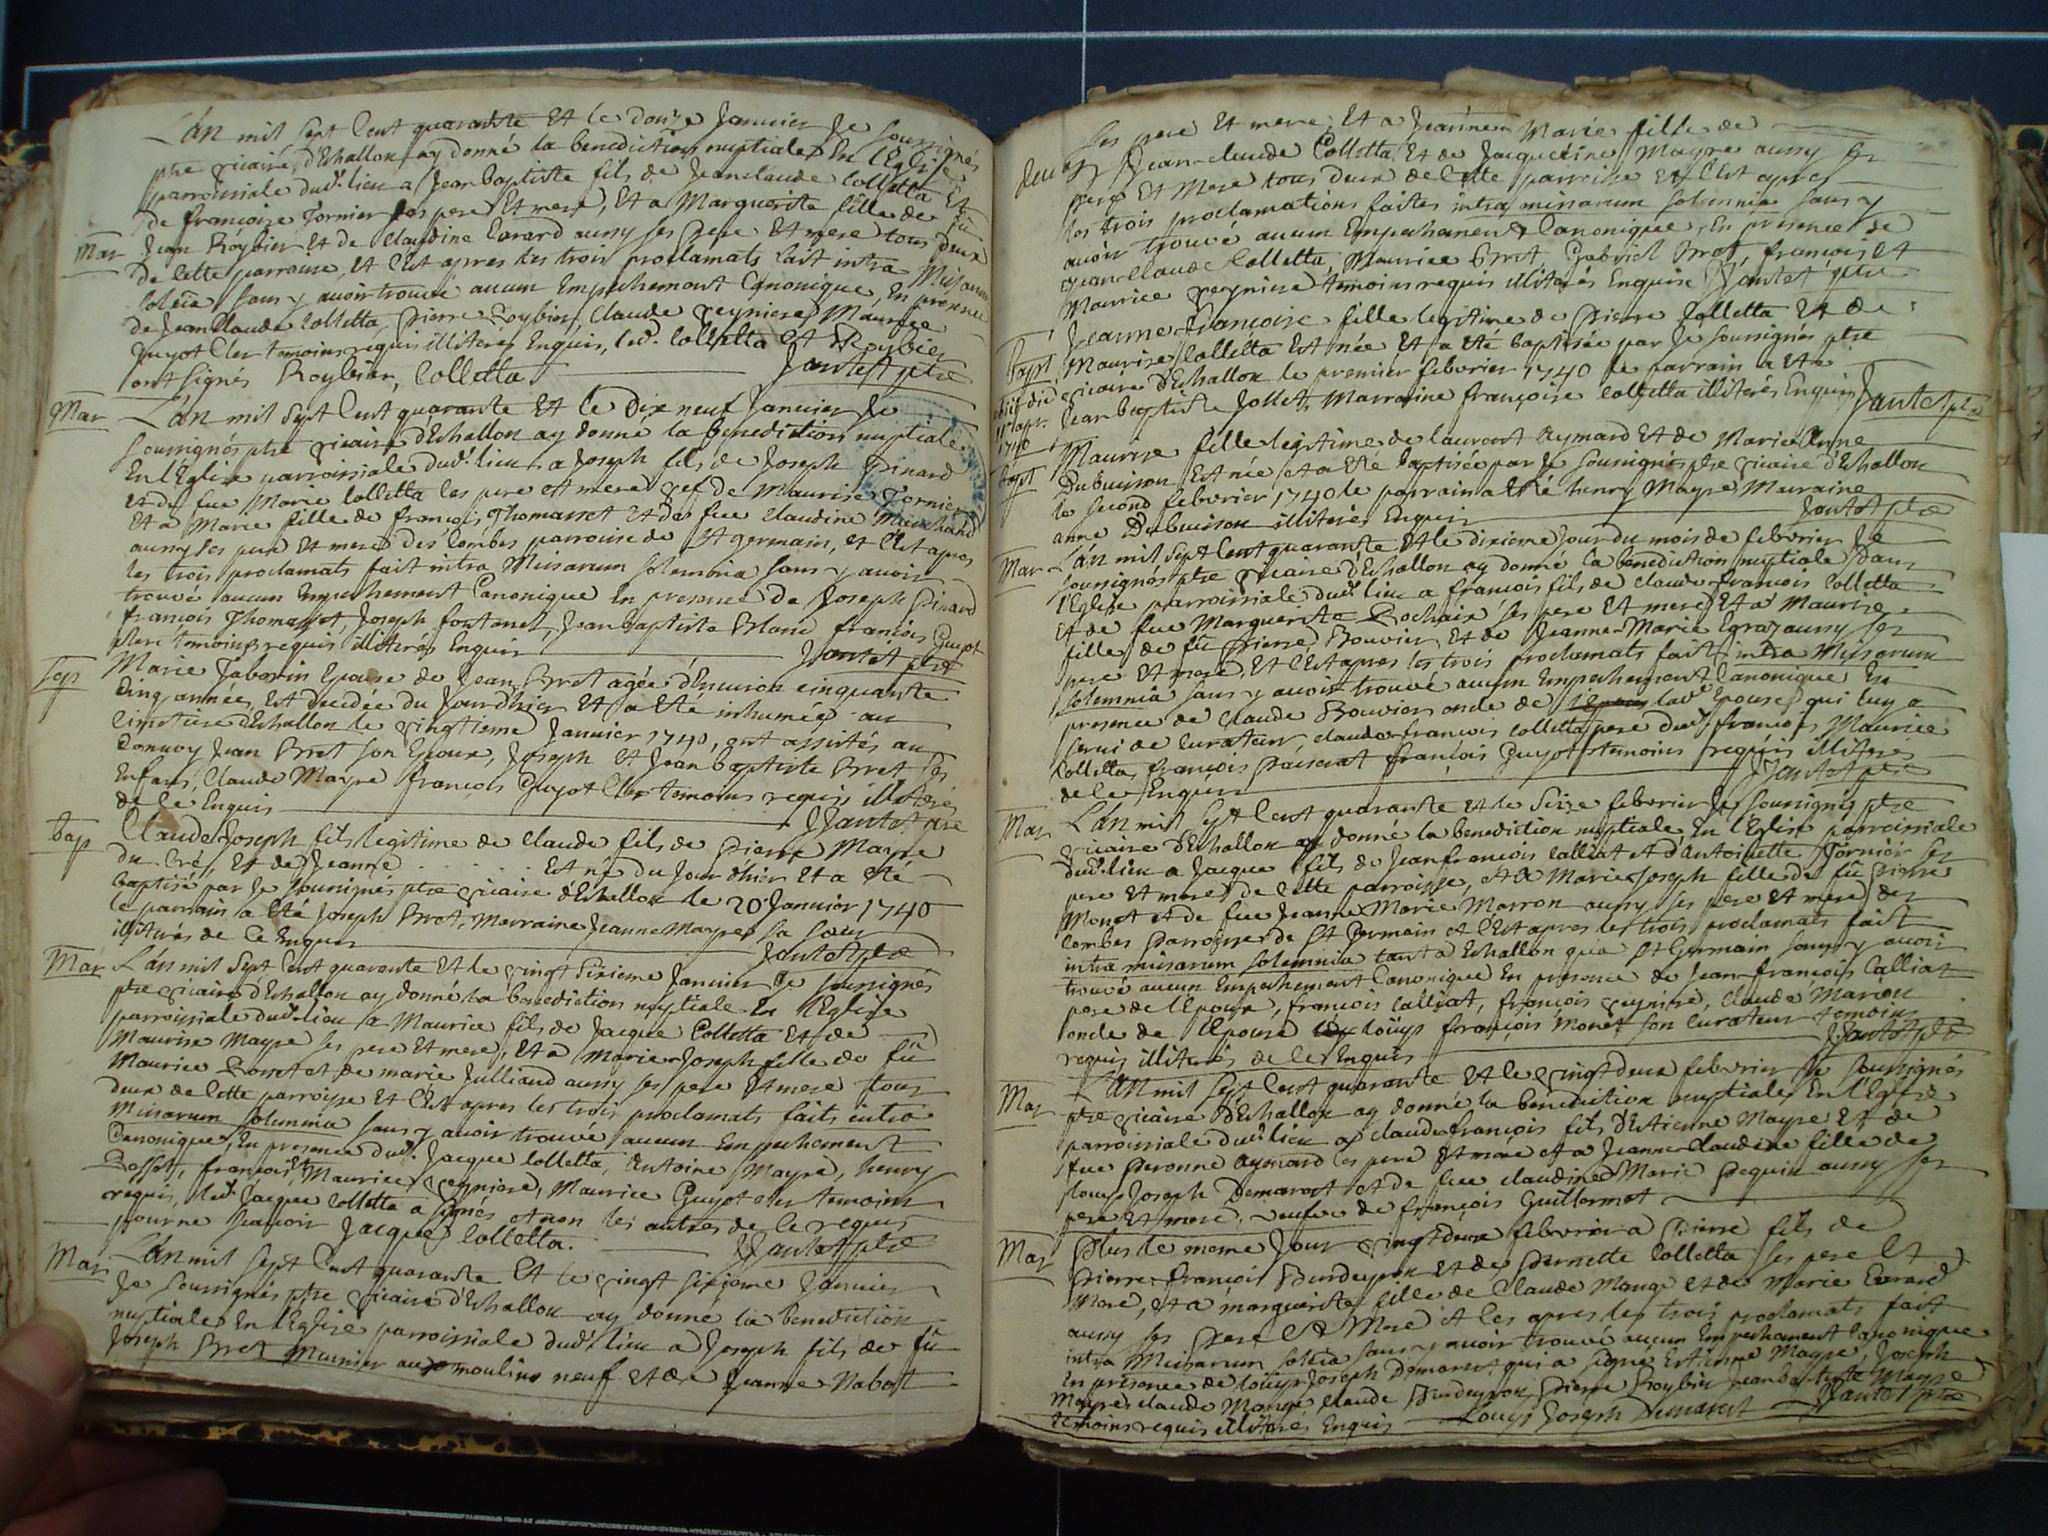 L'an mil sept cent quarante Et le douze Janvier Je soussignés
ptre vicaire, d'Echallon ay donné la benediction nuptiale En l'Eglise
parroissiale dud. lieu a Jean baptiste fils de Jeanclaude Colletta Et
de françoise Tornier ses pere Et mere, Et a Marguerite fille de fû
Mar Jean Roybier Et de Claudine Evrard aussy ses pere Et mere tous deux
de Cette parroisse, et C'est apres les trois proclamats fait intra Missarum
solēia sans y avoir trouvé aucun Empechement Canonique, En presence
de Jean Claude Colletta, Pierre Roybier, Claude reyniere, Maurice
Guyot Cler temoins requis illiteres Enquis, led. Colletta et Roybier
ont signés Roybier, Colletta. Jantet ptre
Mar L'an mil sept Cent quarante Et le Dix neuf Janvier Je
soussignés ptre vicaire d'Echallon ay donné la benediction nuptiale
En l'Eglise parroissiale dud. lieu a Joseph fils de Joseph Pinard
et de fue Marie Colletta ses pere et mere vef de Maurise Tornier
Et a Marie fille de françois Thomasset Et de fue Claudine Marchand
aussy ses pere Et mere des Combes parroisse de St germain, et C'est apres
les trois proclamats fait intra Missarum solemnia sans y avoir
trouvé aucun Empechement Canonique En presence de Joseph Pinard
françois Thomasset, Joseph fontanet, Jean baptiste Blanc françois Guyot
clerc temoins requis illiterés Enquis Jantet ptre
Sep Marie Tabourin Epouse de Jean Bret agée d'Environ cinquante
Cinq années, Est decedée du Jour d'hier Et a Eté inhumée au
Cimetiere d'Echallon le vingtieme Janvier 1740, ont assistés au
Convoy Jean Bret son Epoux, Joseph et Jean baptiste Bret ses
Enfans, Claude Mayre françois Guyot Cler temoins requis illiterés
de ce Enquis Jantet ptre
bap Claude Joseph fils legitime de Claude fils de Pierre Mayre
du Cré, Et de Jeanne . . . Est né du Jour d'hier Et a Eté
baptisé par Je soussignés ptre vicaire d'Echallon le 20 Janvier 1740
le parrain a Eté Joseph Bret, Marraine Jeanne Mayre sa soeur
illiterés de Ce Enquis Jantet ptre
Mar L'an mil sept Cent quarante Et le vingt sixieme Janvier Je soussignés
ptre vicaire d'Echallon ay donné la benediction nuptiale En l'Eglise
parroissiale dud. lieu a Maurice fils de Jacque Colletta Et de
Maurise Mayre ses pere Et mere, Et a Marie Joseph fille de fû
Maurice Rosset et de marie Julliand aussy ses pere Et mere tous
deux de Cette parroisse Et C'est apres les trois proclamats faits intra
Missarum solemnia sans y avoir trouvé aucun Empechement
Canonique, En presence dud. Jacque Colletta, Antoine Mayre, henry
Rosset, françois, et Maurice reyniere, Maurice Guyot cler temoins
requis, led. Jacque Colletta a signés et non les autres de Ce requis
pour ne sçavoir Jacque Colletta. Jantet ptre
Mar L'an mil sept Cent quarante Et le vingt sixieme Janvier
Je soussignés ptre vicaire d'Echallon ay donné la benediction
nuptiale En l'Eglise parroissiale dud. lieu a Joseph fils de fû
Joseph Bret Munier au moulin neuf et de Jeanne Nabot
ses pere Et mere, Et a Jeanne Marie fille de
Jean-Claude Colletta Et de Jacquemine Mayre aussy ses
pere Et Mere tous deux de Cette parroisse et C'est apres
les trois proclamations faites intra missarum solemnia sans y
avoir trouvé aucun Empechement Canonique, En presence de
Jean Claude Colletta, Maurice Bret, Gabriel Bret, françois Et
Maurice reyniere temoins requis illiterés Enquis Jantet ptre
bapt Jeanne françoise fille legitime de Pierre Colletta Et de
Maurise Colletta Est née Et a Eté baptisée par Je soussignés ptre
vicaire d'Echallon le premier febvrier 1740 le parrain a Eté
Jean baptiste Jollet, Marraine françoise Colletta illiterés Enquis Jantet ptre
1740
bapt Maurise fille legitime de laurent Aymard Et de Marie Anne
Dubuisson Est née et a Eté baptisée par Je soussignés ptre vicaire d'Echallon
le second febvrier 1740 le parrain a Eté henry Mayre Marraine
anne Dubuisson illiterés Enquis Jantet ptre
Mar L'an mil sept Cent quarante Et le dixieme Jour du mois de febvrier Je
soussignés ptre vicaire d'Echallon ay donné la benediction nuptiale Dans
l'Eglise parroissiale dud. lieu a françois fils de Claude françois Colletta
Et de fue Marguerite Rochaix ses pere Et mere Et a Maurise
fille de fû Pierre Bouvier Et de Jeanne-Marie Egraz aussy ses
pere Et mere, Et C'est apres les trois proclamats fait intra Missarum
solemnia sans y avoir trouvé aucun Empechement Canonique En
presence de Claude Bouvier oncle de lad. Epouse, qui luy a
servi de Curateur, Claude françois Colletta pere dud. françois Maurice
Colletta, françois Passerat françois Guyot temoins requis illiteres
de Ce Enquis Jantet ptre
Mar L'an mil sept Cent quarante et le seize febvrier Je soussignés ptre
vicaire d'Echallon ay donné la benediction nuptiale En l'Eglise parroissiale
dud. lieu a Jacque fils de Jean françois Calliat et d'Antoinette Tornier ses
pere et mere de Cette parroisse, et a Marie Joseph fille de fû Pierre
Monet et de fue Jeanne Marie Marron aussy ses pere et mere des
Combes Parroisse de St Germain et C'est apres les trois proclamats fait
intra missarum solemnia tant a Echallon qu'a St Germain sans y avoir
trouvé aucun Empechement Canonique En presence de Jean françois Calliat
pere de l'Epoux, françois Calliat, françois reyniere, Claude Marron
oncle de l'Epouse louys françois Monet son Curateur temoins
requis illiterés de Ce Enquis Jantet ptre
Mar L'an mil sept Cent quarante Et le vingt deux febvrier Je soussignés
ptre vicaire d'Echallon ay donné la benediction nuptiale En l'Eglise
parroissiale dud. lieu a Claude françois fils d'Etienne Mayre Et de
fue Peronne Aymard ses pere Et mere et a Jeanne-Claudine fille de
louys Joseph Demarest et de fue Claudine Marie Pequin aussy ses
pere Et mere, veufve de françois Guillermet
Mar Plus le meme Jour vingt deux febvrier a Pierre fils de
Pierre-françois Burdeyron Et de Pernette Colletta ses pere Et
Mere, et a marguerite fille de Claude Mange et de Marie Evrard
aussy ses Pere Et Mere et Ces apres les trois proclamats fait
intra Missarum solēia sans y avoir trouvé aucun Empechement Canonique
En presence de louys Joseph Demarest qui a signé, Estienne Mayre, Joseph
Mayre, Claude Mange Claude Burdeyron Pierre Roybier Jean ba-tiste Mayre
temoins requis illiterés Enquis Louys Joseph Demarest Jantet ptre